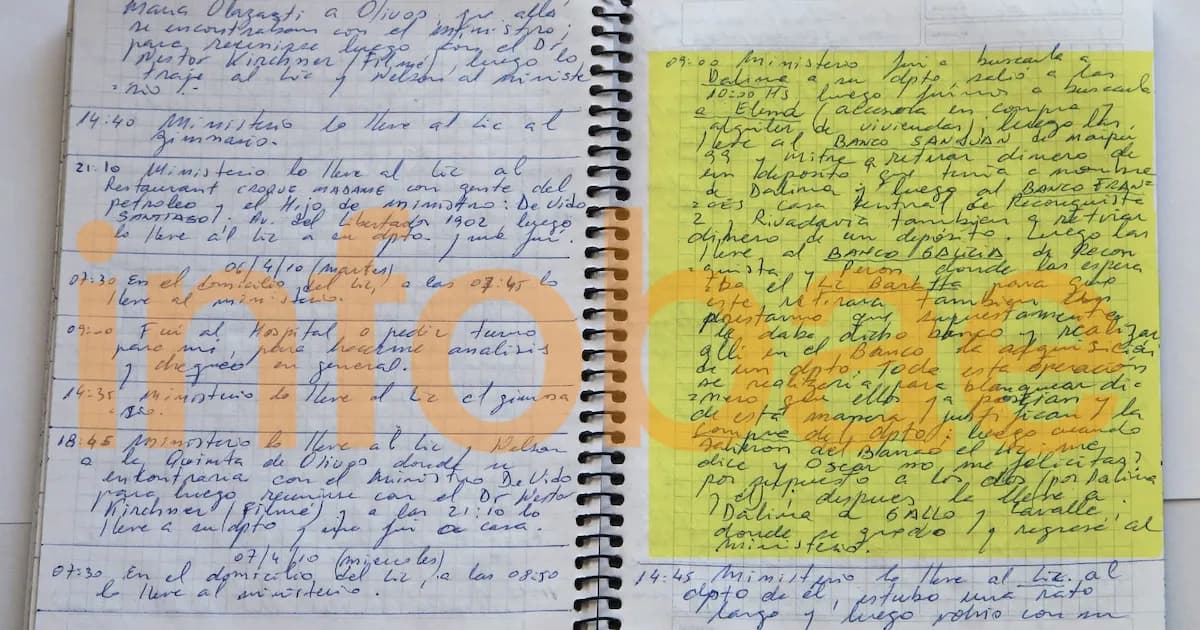 Maria Olazagasti a Olivos, que alla
se encontraban con el Ministro;
para reunirse luego con el Dr
Nestor Kirchner (Filmé), luego lo
traje al Lic y Nelson al ministe
=rio.-
14:40 Ministerio lo lleve al Lic al
Gimnasio.
21:10 Ministerio lo lleve al Lic al
Restaurant CROQUE MADAME con gente del
petroleo y el Hijo de Ministro: De Vido
SANTIAGO). Av. del Libertador 1902 luego
lo lleve al Lic a su dpto. y me fui.
06/4/10 (martes)
07:30 En el domicilio del Lic, a las 07:45 lo
lleve al ministerio.
09:00 Fui al Hospital a pedir turno
para mi, para hacerme analisis
y chequeo en general.
14:35 Ministerio lo lleve al Lic al gimna
=sio.
18:45 Ministerio lo lleve al Lic y Nelson
a la Quinta de Olivos donde se
encontraria con el Ministro De Vido
para luego reunirse con el Dr Nestor
Kirchner (Filmé) y a las 21:10 lo
lleve a su dpto y me fui a casa.
07/4/10 (miercoles)
07:30 En el domicilio del Lic, a las 08:50
lo lleve al ministerio.
09:00 Ministerio fui a buscarla a
Dalina a su dpto, salió a las
10:00 Hs luego fuimos a buscarla
a Elena (asesora en compra y
alquiler de viviendas, luego las
lleve al BANCO SAN JUAN de Maipu
99 y Mitre a retirar dinero de
un deposito que tenia a nombre
de Dalina; luego al BANCO FRAN=
=CES casa Central de Reconquista
y Rivadavia tambien a retirar
dinero de un deposito. Luego las
lleve al BANCO GALICIA de Recon
=quista y Peron donde las espera
=ba el Lic Baratta para que
este, retirara tambien un
prestamo que supuestamente
le daba dicho banco y realizar
alli en el Banco la adquisición
de un dpto. Toda esta operacion
se realizaria para blanquear di=
=nero que ellos ya poseian y
de esta manera justifican la
compra del dpto; luego cuando
salieron del Banco el Lic me
dice y Oscar no me felicitas?
por supuesto a los dos (por Dalina
y el), despues la lleve a
Dalina a GALLO y Lavalle,
donde se quedo y regresé al
Ministerio.
14:45 Ministerio lo lleve al Lic. al
dpto de el, estubo un rato
largo y luego volvio con su
infobae